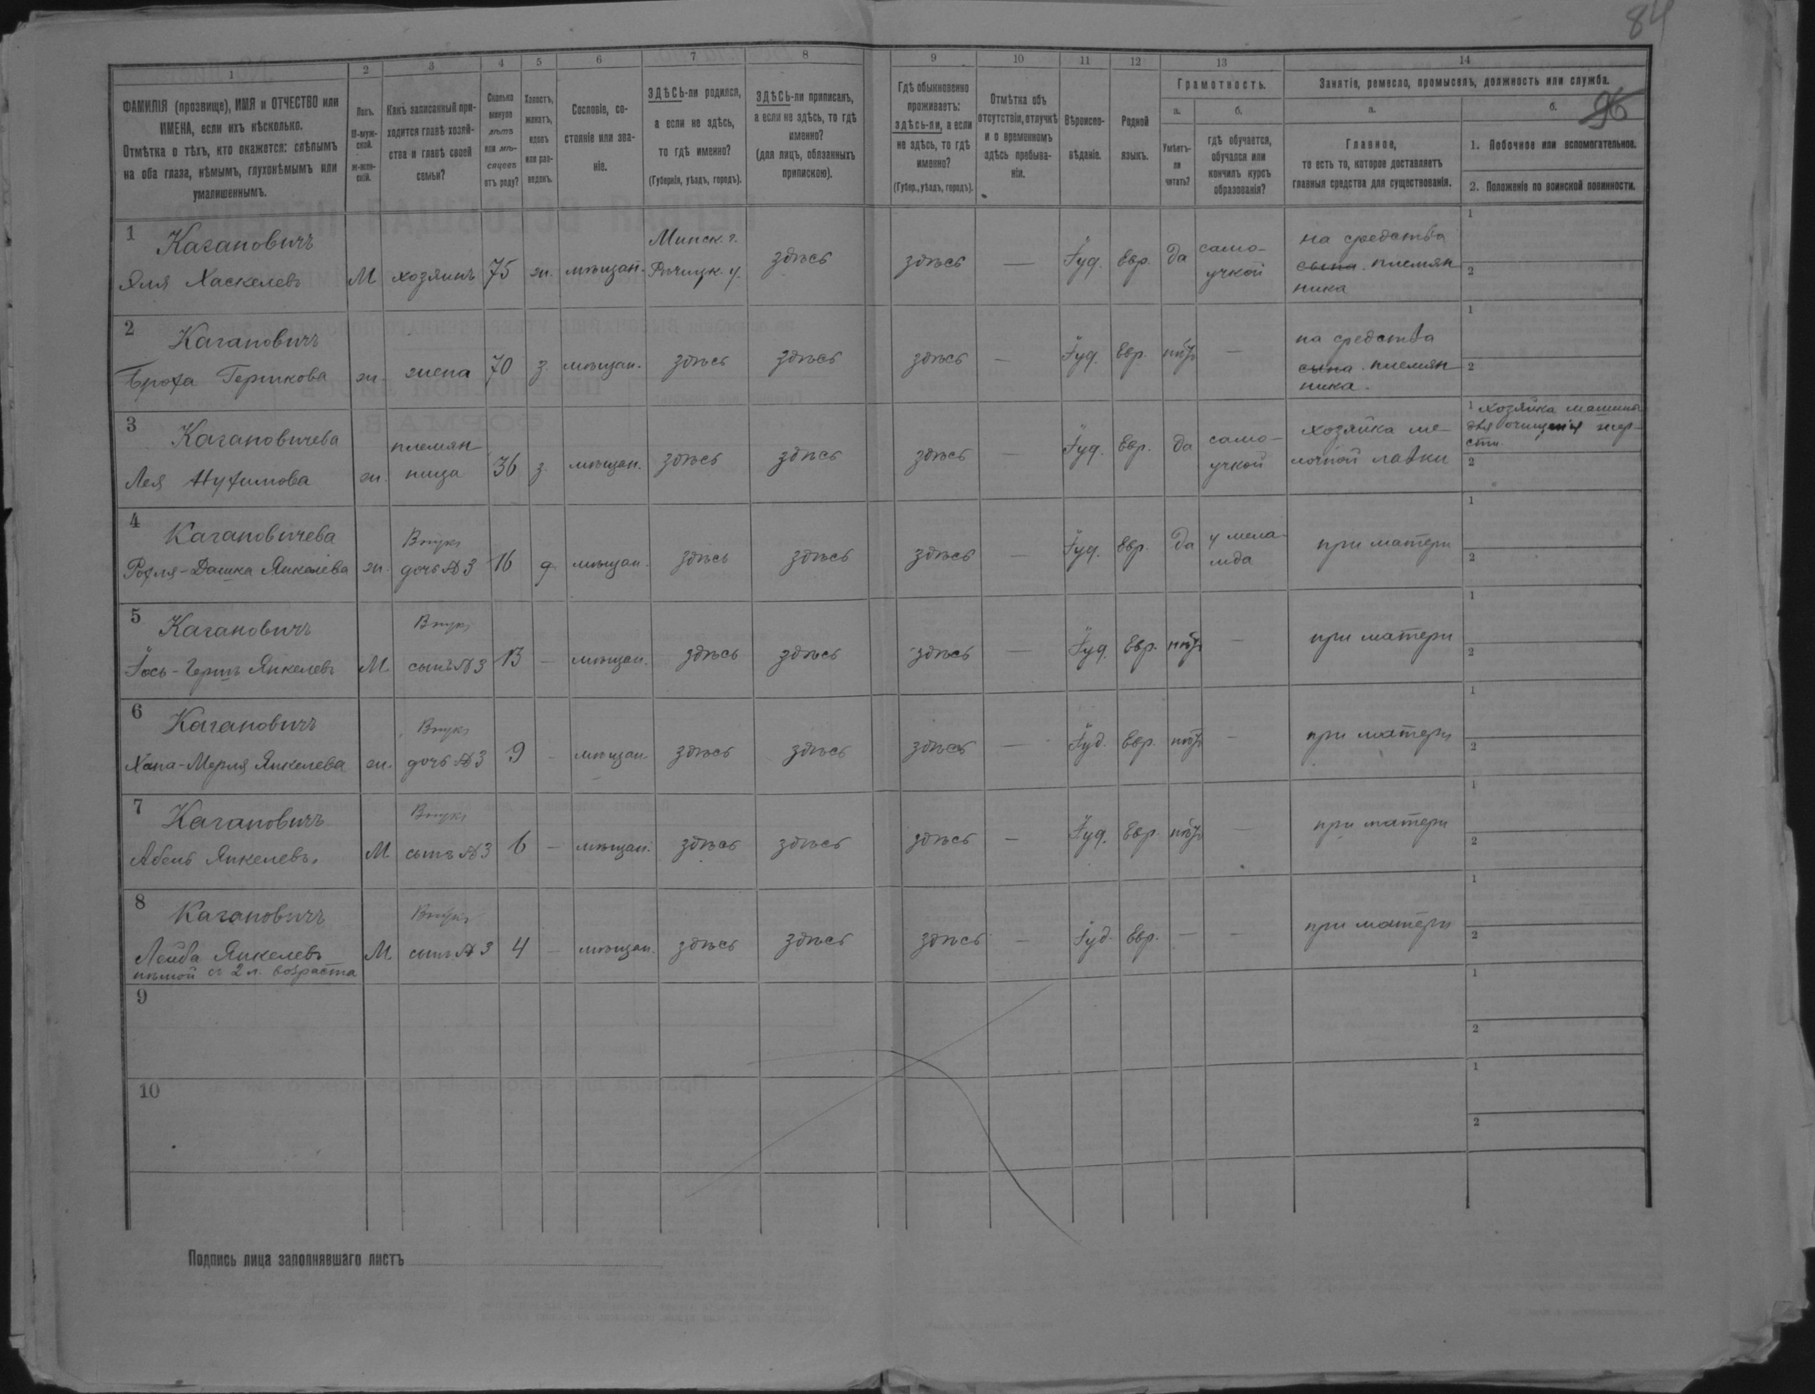 84
1
2
3
4
5
6
7
8
9
10
11
12
13
14
ФАМИЛІЯ (прозвище), ИМЯ и ОТЧЕСТВО или
ИМЕНА, если ихъ нѣсколько.
Отмѣтка о тѣхъ, кто окажется: слѣпымъ
на оба глаза, нѣмымъ, глухонѣмымъ или
умалишеннымъ.
Полъ.
М-муж-
ской.
ж-жен-
скій.
Какъ записанный при-
ходится главѣ хозяй-
ства и главѣ своей
семьи?
Сколько
минуло
лѣтъ
или мѣ-
сяцевъ
отъ роду?
Холостъ,
женатъ,
вдовъ
или раз-
веденъ.
Сословіе, со-
стояніе или зва-
ніе.
ЗДѢСЬ-ли родился,
а если не здѣсь,
то гдѣ именно?
(Губернія, уѣздъ, городъ).
ЗДѢСЬ-ли приписанъ,
а если не здѣсь, то гдѣ
именно?
(для лицъ, обязанныхъ
припискою).
Гдѣ обыкновенно
проживаетъ:
здѣсь-ли, а если
не здѣсь, то гдѣ
именно?
(Губерн., уѣздъ, городъ).
Отмѣтка объ
отсутствіи, отлучкѣ
и о временномъ
здѣсь пребыва-
ніи.
Вѣроиспо-
вѣданіе.
Родной
языкъ.
Грамотность.
а.
Умѣетъ-
ли
читать?
б.
гдѣ обучается,
обучался или
кончилъ курсъ
образованія?
Занятіе, ремесло, промыселъ, должность или служба.
а.
Главное,
то есть то, которое доставляетъ
главныя средства для существованія.
б.
96
1. Побочное или вспомогательное.
2. Положеніе по воинской повинности.
1
Кагановичъ
Эля Хаскелевъ
М
хозяинъ
75
ж.
мѣщан.
Минск. г.
Рѣчицк. у.
здѣсь
здѣсь
—
Іуд.
Евр.
да
само-
учкой
на средства
сына племян
ника
1
2
2
Кагановичъ
Броха Гершкова
ж.
жена
70
з.
мѣщан.
здѣсь
здѣсь
здѣсь
—
Іуд.
Евр.
нѣтъ
—
на средства
сына племян
ника.
1
2
3
Кагановичева
Лея Нухимова
ж.
племян-
ница
36
з.
мѣщан.
здѣсь
здѣсь
здѣсь
—
Іуд.
Евр.
да
само-
учкой
хозяйка ме-
лочной лавки
1 хозяйка машины
для очищенія шер-
сти
2
4
Кагановичева
Рохля-Дашка Янкелева
ж.
Внук.
дочь №3
16
д.
мѣщан.
здѣсь
здѣсь
здѣсь
—
Іуд.
Евр.
да
у мела-
мда
при матери
1
2
5
Кагановичъ
Іось-Гершъ Янкелевъ
М.
Внук.
сынъ №3
13
—
мѣщан.
здѣсь
здѣсь
здѣсь
—
Іуд.
Евр.
нѣтъ
—
при матери
1
2
6
Кагановичъ
Хана-Мерля Янкелева
ж.
Внук.
дочь №3
9
—
мѣщан.
здѣсь
здѣсь
здѣсь
—
Іуд.
Евр.
нѣтъ
—
при матери
1
2
7
Кагановичъ
Абель Янкелевъ.
М.
Внук.
сынъ №3
6
—
мѣщан.
здѣсь
здѣсь
здѣсь
—
Іуд.
Евр.
нѣтъ
—
при матери
1
2
8
Кагановичъ
Лейба Янкелевъ
нѣмой съ 2 л. возраста
М.
Внук.
сынъ №3
4
—
мѣщан.
здѣсь
здѣсь
здѣсь
—
Іуд.
Евр.
—
—
при матери
1
2
9
1
2
10
1
2
Подпись лица заполнявшаго листъ